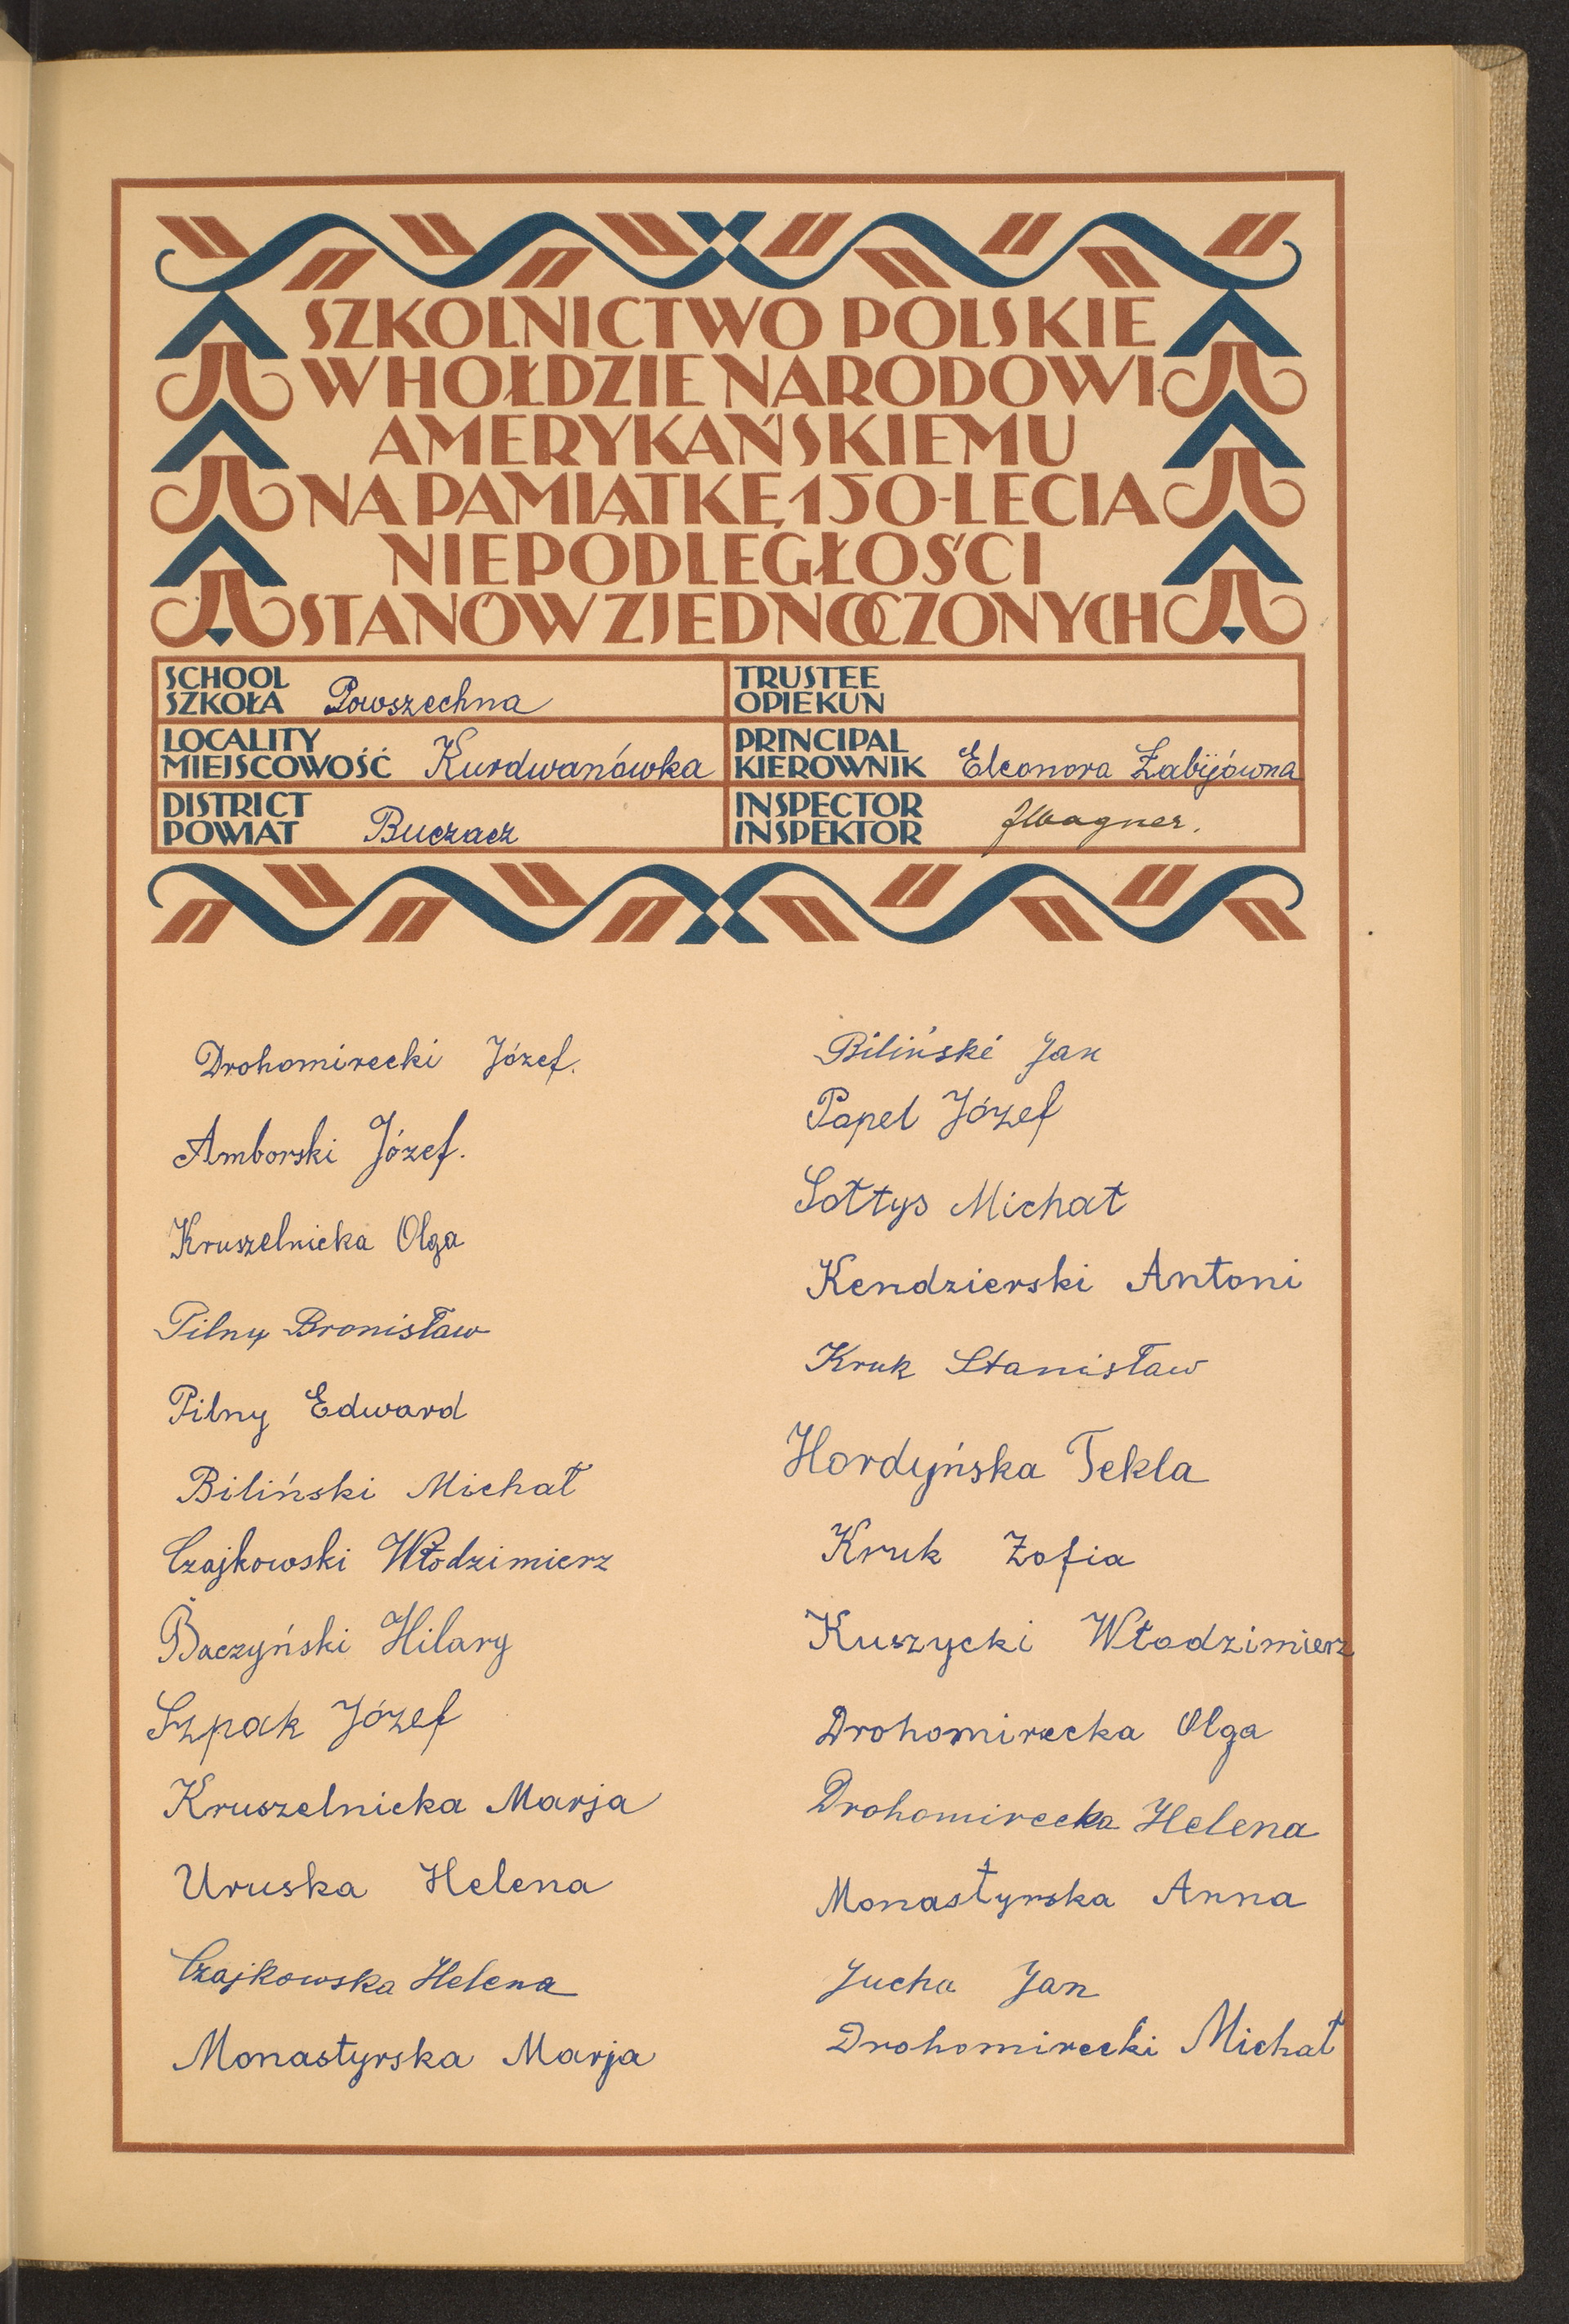 SZKOLNICTWO POLSKIE
W HOŁDZIE NARODOWI
AMERYKAŃSKIEMU
NA PAMIĄTKĘ 150-LECIA
NIEPODLEGŁOŚCI
STANÓW ZJEDNOCZONYCH
SCHOOL
SZKOŁA Powszechna
TRUSTEE
OPIEKUN
LOCALITY
MIEJSCOWOŚĆ Kurdwanówka
PRINCIPAL
KIEROWNIK Eleonora Żabijówna
DISTRICT
POWIAT Buczacz
INSPECTOR
INSPEKTOR JWagner.
Drohomirecki Józef.
Amborski Józef.
Kruszelnicka Olga
Pilny Bronisław
Pilny Edward
Biliński Michał
Czajkowski Włodzimierz
Baczyński Hilary
Szpak Józef
Kruszelnicka Marja
Uruska Helena
Czajkowska Helena
Monastyrska Marja
Biliński Jan
Papel Józef
Sołtys Michał
Kendzierski Antoni
Kruk Stanisław
Hordyńska Tekla
Kruk Zofia
Kuszycki Włodzimierz
Drohomirecka Olga
Drohomirecka Helena
Monastyrska Anna
Jucha Jan
Drohomirecki Michał